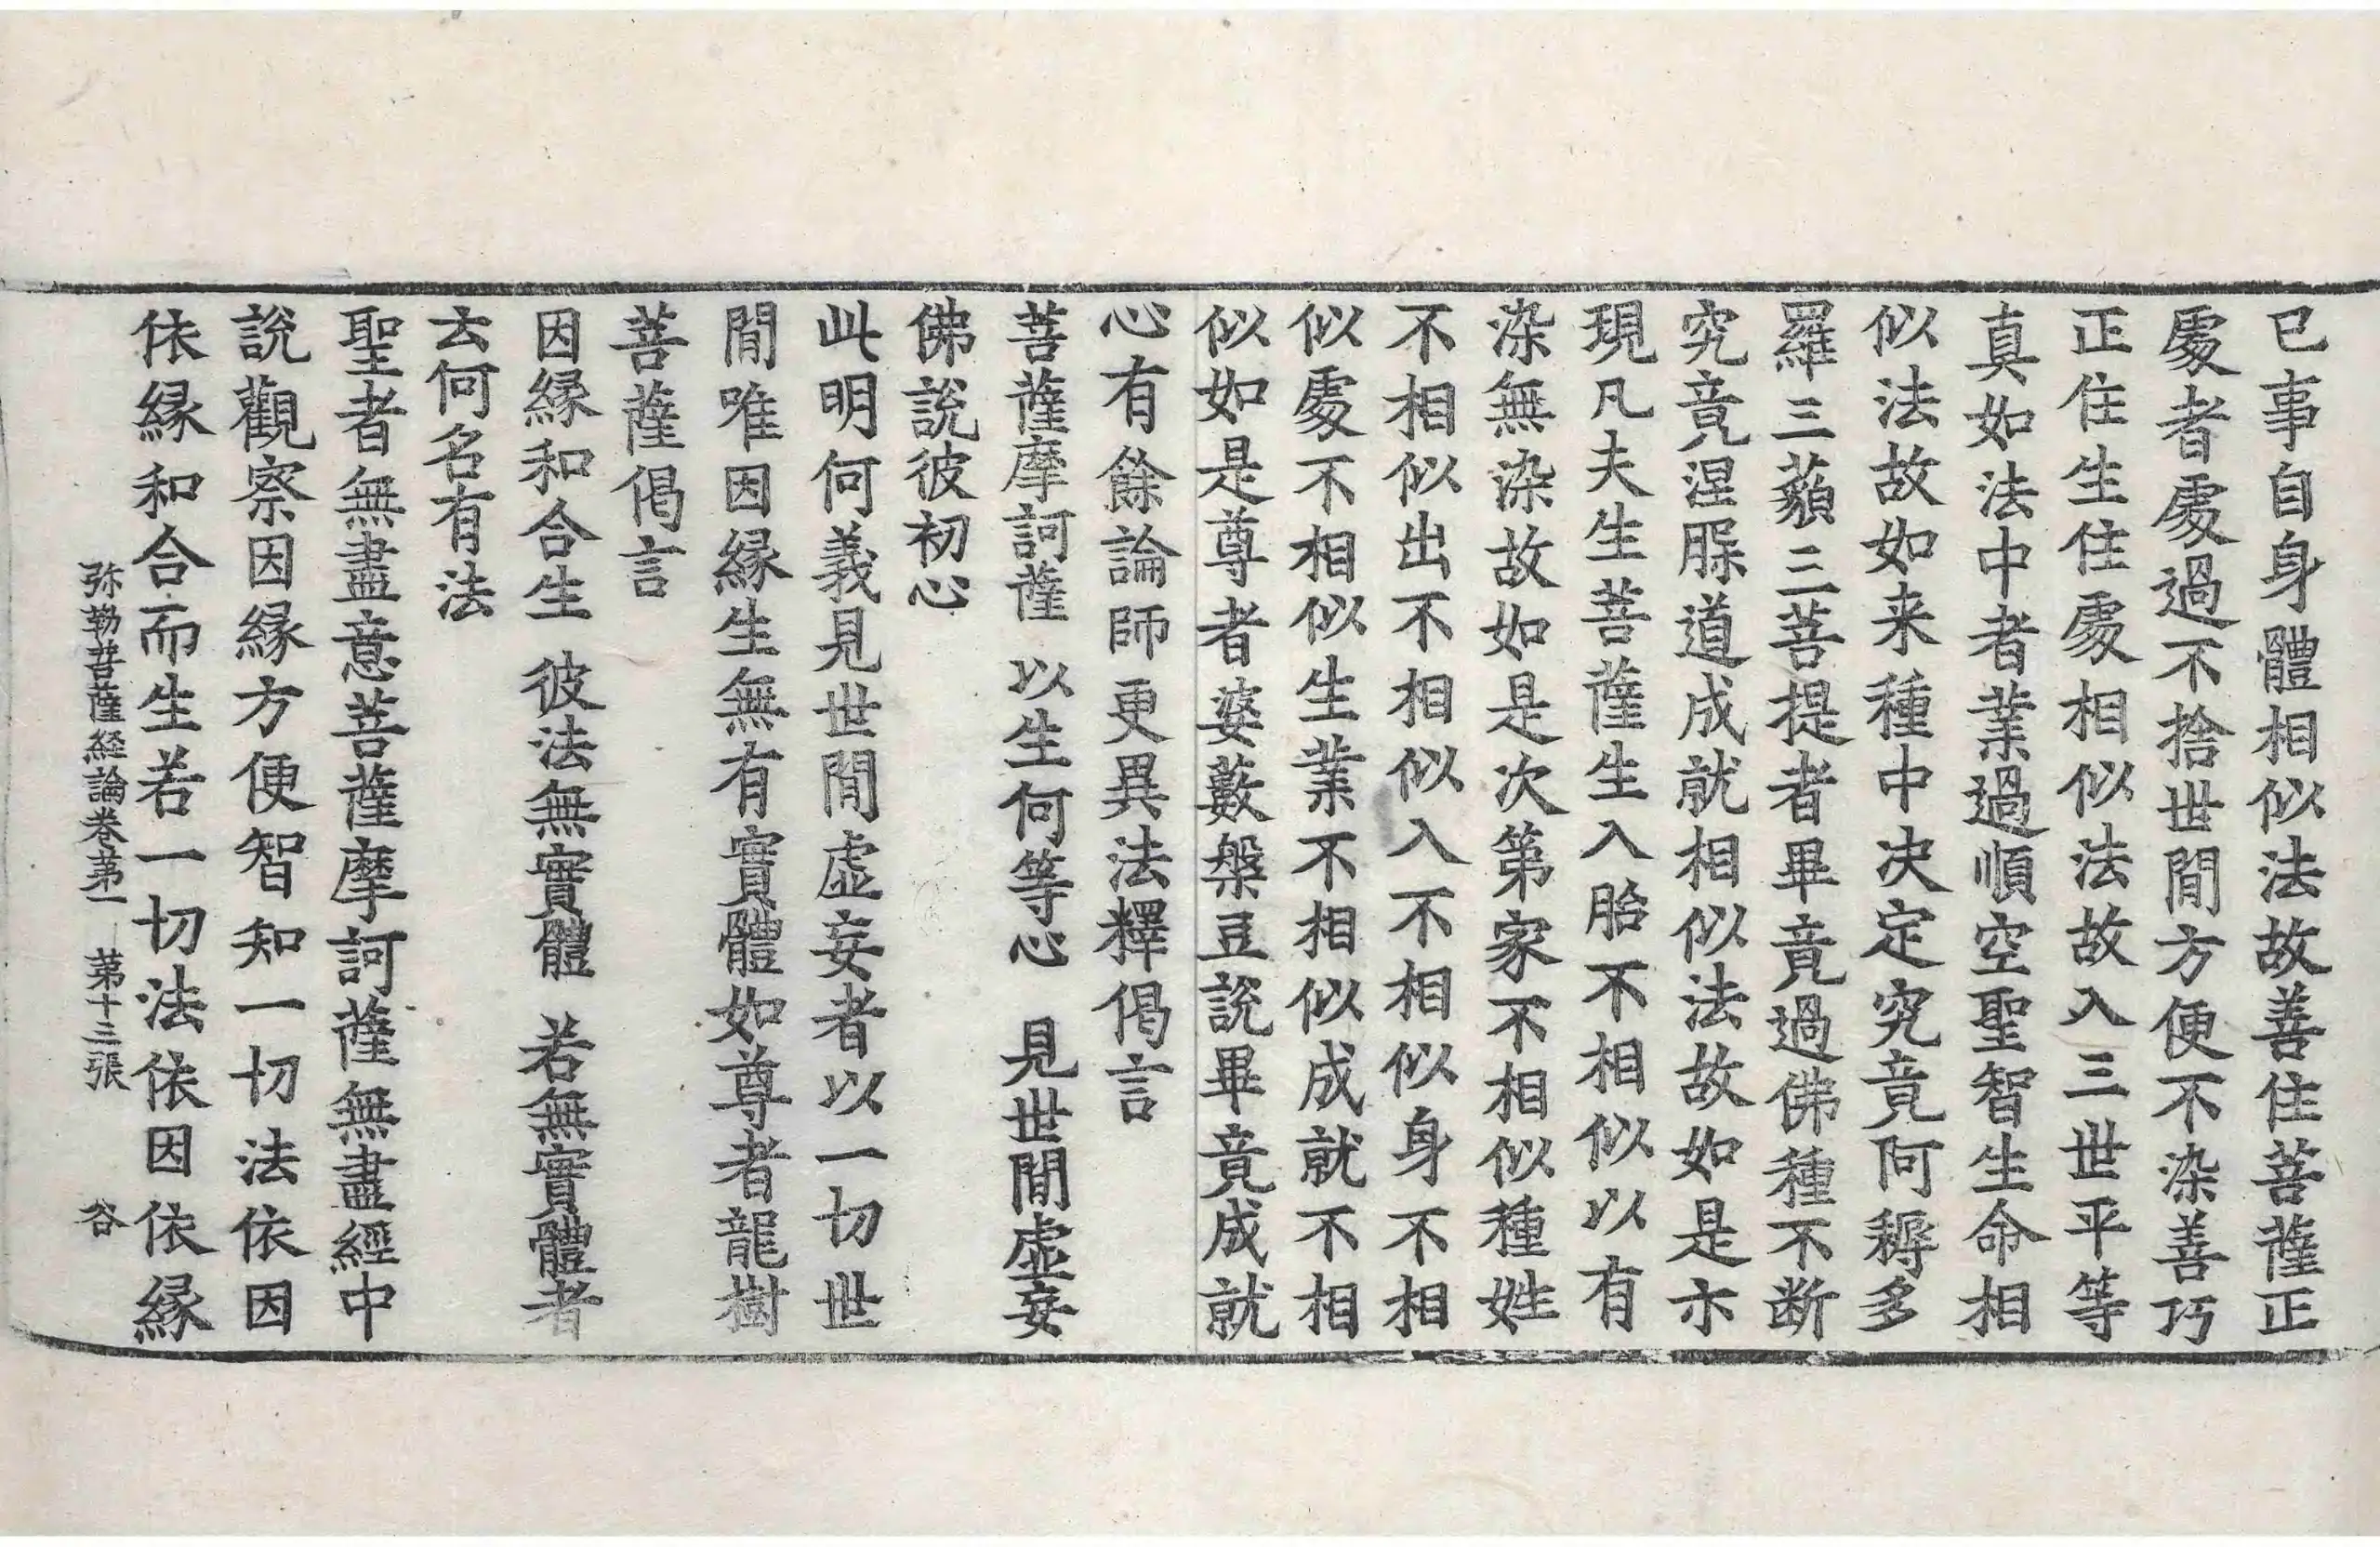 已事自身體相似法故善住菩薩正
處者處過不捨世閒方便不染善巧
正住生住處相似法故入三世平等
真如法中者業過順空聖智生命相
似法故如来種中决定究竟阿耨多
羅三藐三菩提者畢竟過佛種不断
究竟涅槃道成就相似法故如是示
現凡夫生菩薩生入胎不相似以有
染無染故如是次第家不相似種姓
不相似出不相似入不相似身不相
似處不相似生業不相似成就不相
似如是尊者婆薮槃豆說畢竟成就
心有餘論師更異法釋偈言
菩薩摩訶薩 以生何等心 見世閒虛妄
佛說彼初心
此明何義見世閒虛妄者以一切世
閒唯因緣生無有實體如尊者龍樹
菩薩偈言
因緣和合生 彼法無實體 若無實體者
云何名有法
聖者無盡意菩薩摩訶薩無盡經中
說觀察因緣方便智知一切法依因
依緣和合而生若一切法依因依緣
弥勒菩薩経論卷第一 第十三張 谷